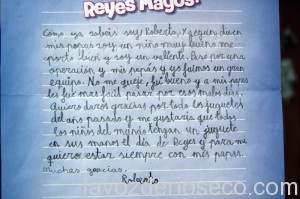 Reyes Magos!
Como ya sabeis soy Roberto. Y según dicen
mis papas soy un niño muy bueno me
porto bien y soy un valiente. Pase por una
operación y mis papás y yo fuimos un gran
equipo. No me quejé, fui bueno y a mis peres
les fue mas fácil pasar por esos malos dias.
Quiero daros gracias por todo los juguetes
del año pasado y me gustaria que todos
los niños del mundo tengan un juguete
en sus manos el día de Reyes y para mi
quiero estar siempre con mis papas.
muchas gracias.
Roberto